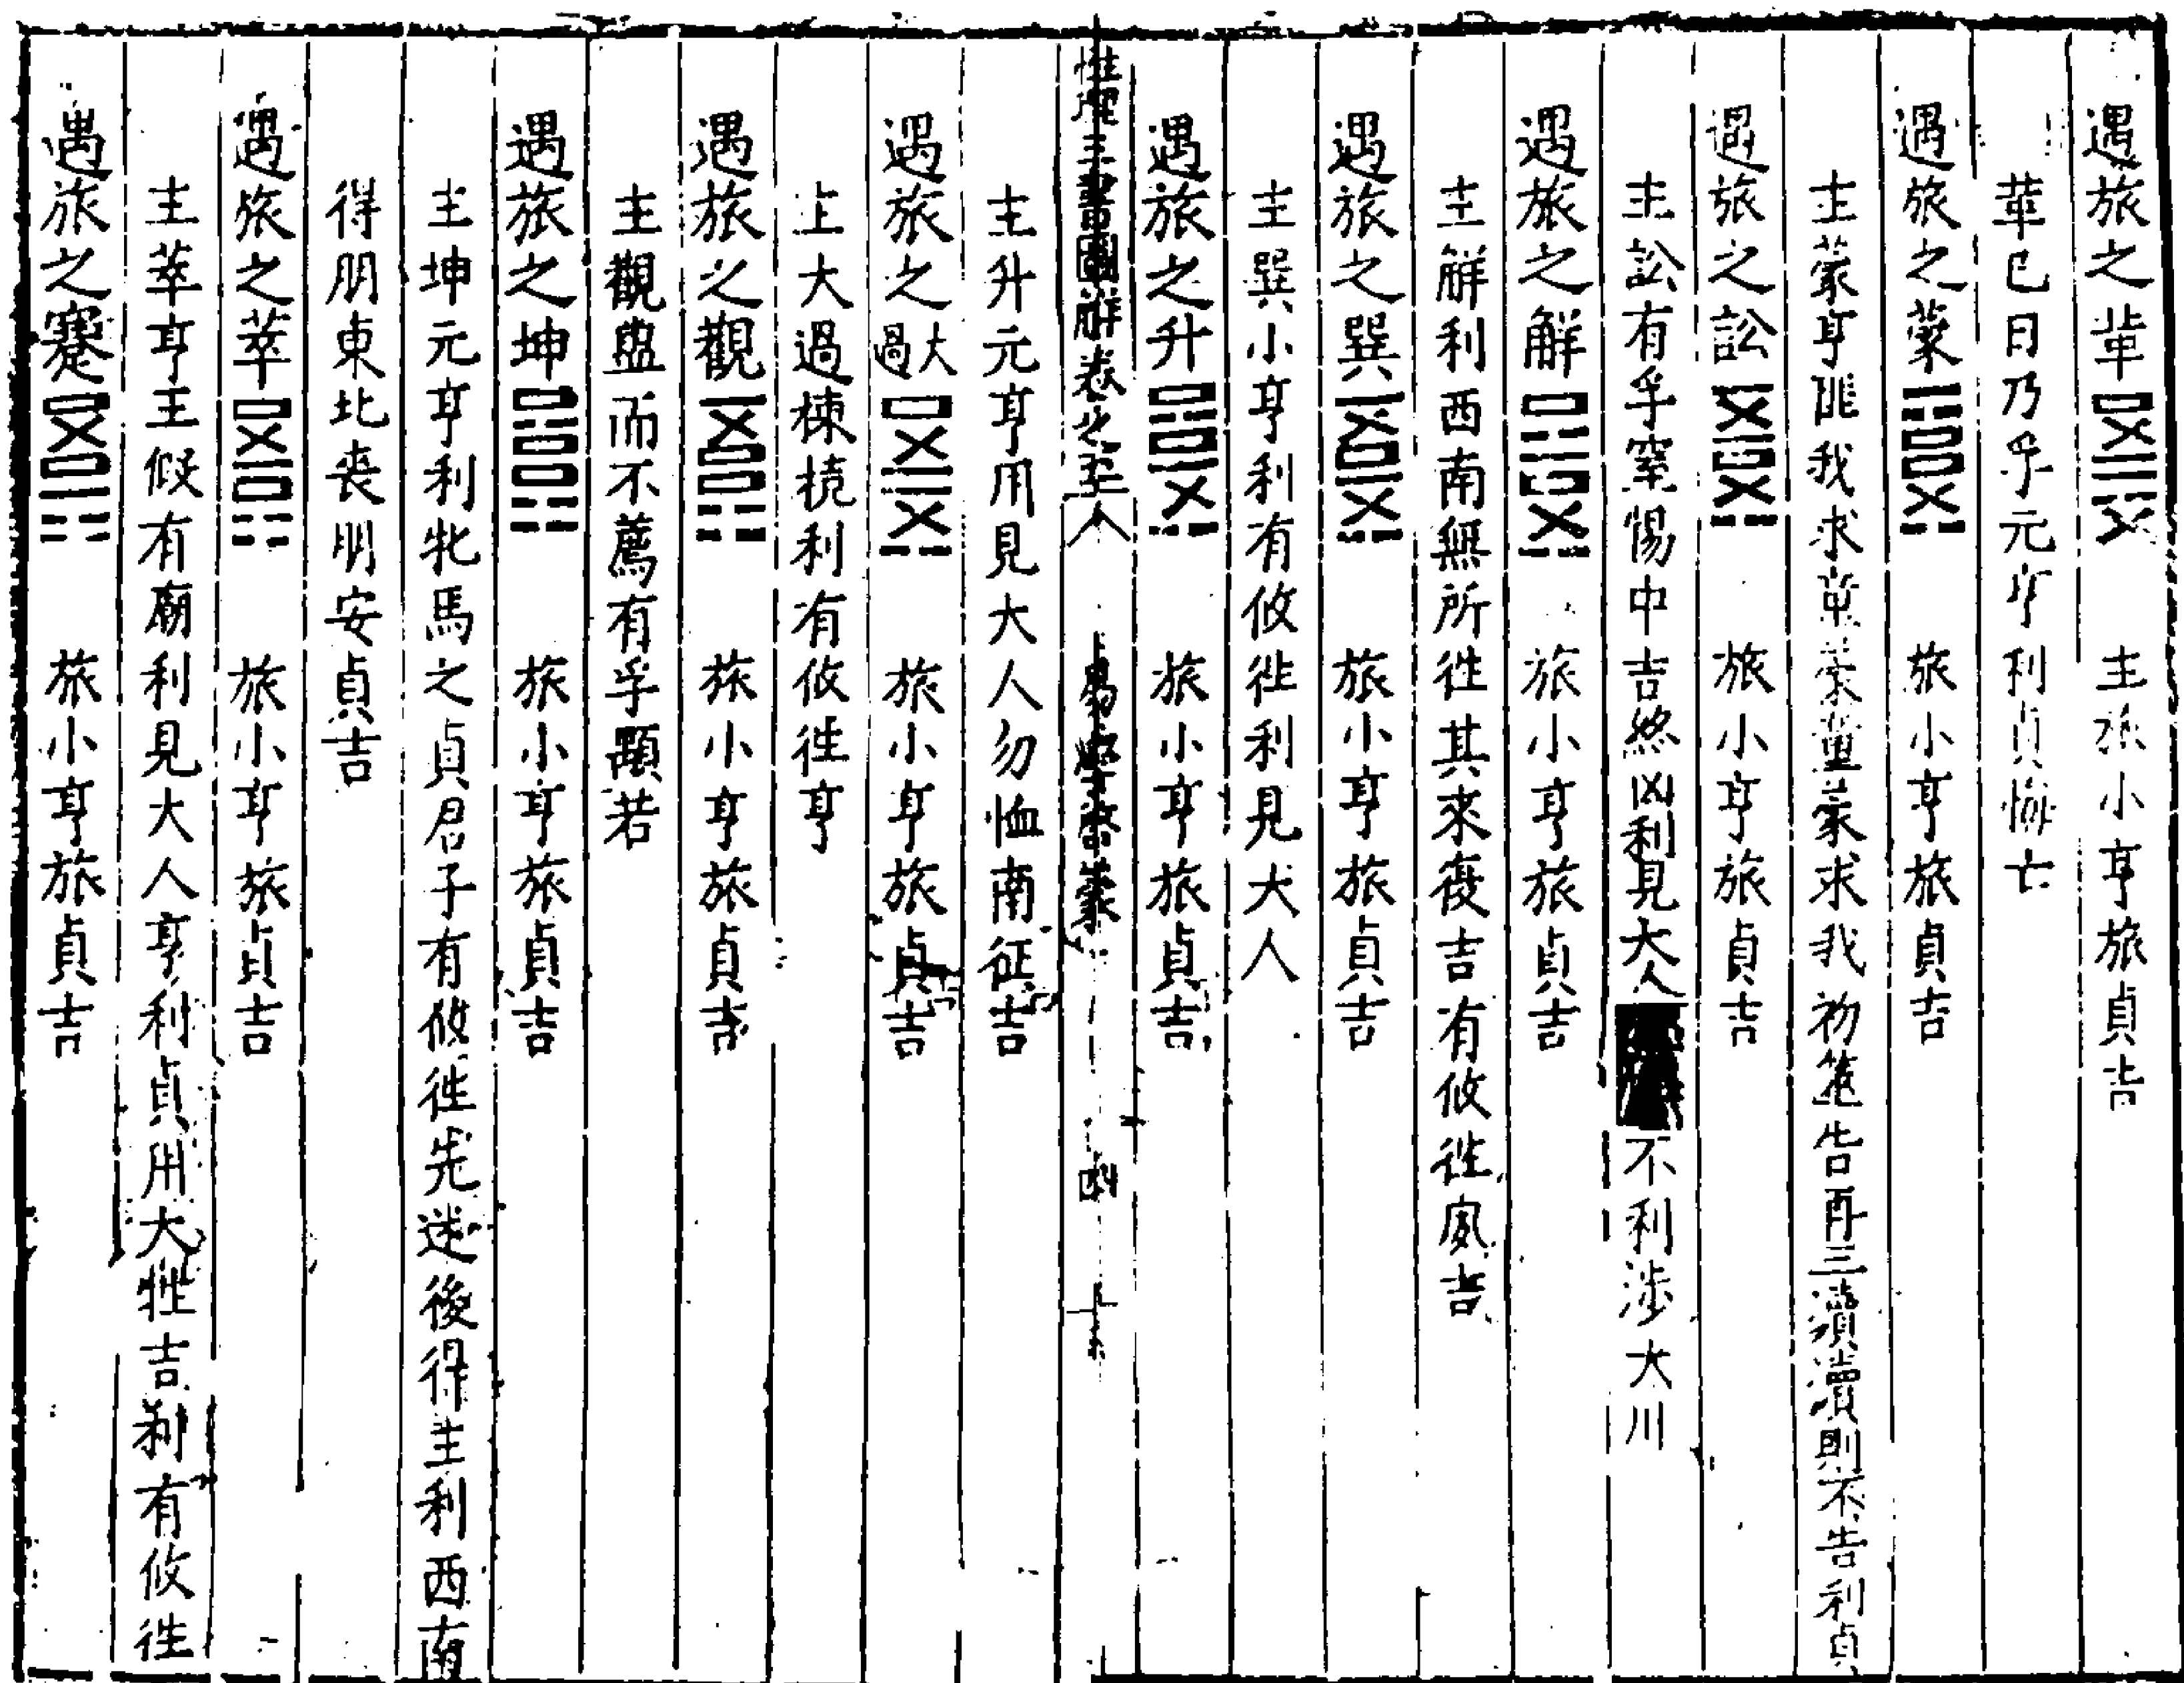 遇旅之革 主旅小亨旅貞吉
革已日乃孚元亨利貞悔亡
遇旅之蒙 旅小亨旅貞吉
主蒙亨匪我求童蒙童蒙求我初筮告再三瀆瀆則不告利貞
遇旅之訟 旅小亨旅貞吉
主訟有孚窒惕中吉終凶利見大人不利涉大川
遇旅之解 旅小亨旅貞吉
主解利西南無所徃其來復吉有攸徃夙吉
遇旅之巽 旅小亨旅貞吉
主巽小亨利有攸徃利見大人
遇旅之升 旅小亨旅貞吉
性理三書圖解卷之 易學啓蒙
主升元亨用見大人勿恤南征吉
遇旅之大過 旅小亨旅貞吉
上大過棟橈利有攸徃亨
遇旅之觀 旅小亨旅貞吉
主觀盥而不薦有孚顒若
遇旅之坤 旅小亨旅貞吉
主坤元亨利牝馬之貞君子有攸徃先迷後得主利西南
得朋東北喪朋安貞吉
遇旅之萃 旅小亨旅貞吉
主萃亨王假有廟利見大人亨利貞用大牲吉利有攸徃
遇旅之蹇 旅小亨旅貞吉